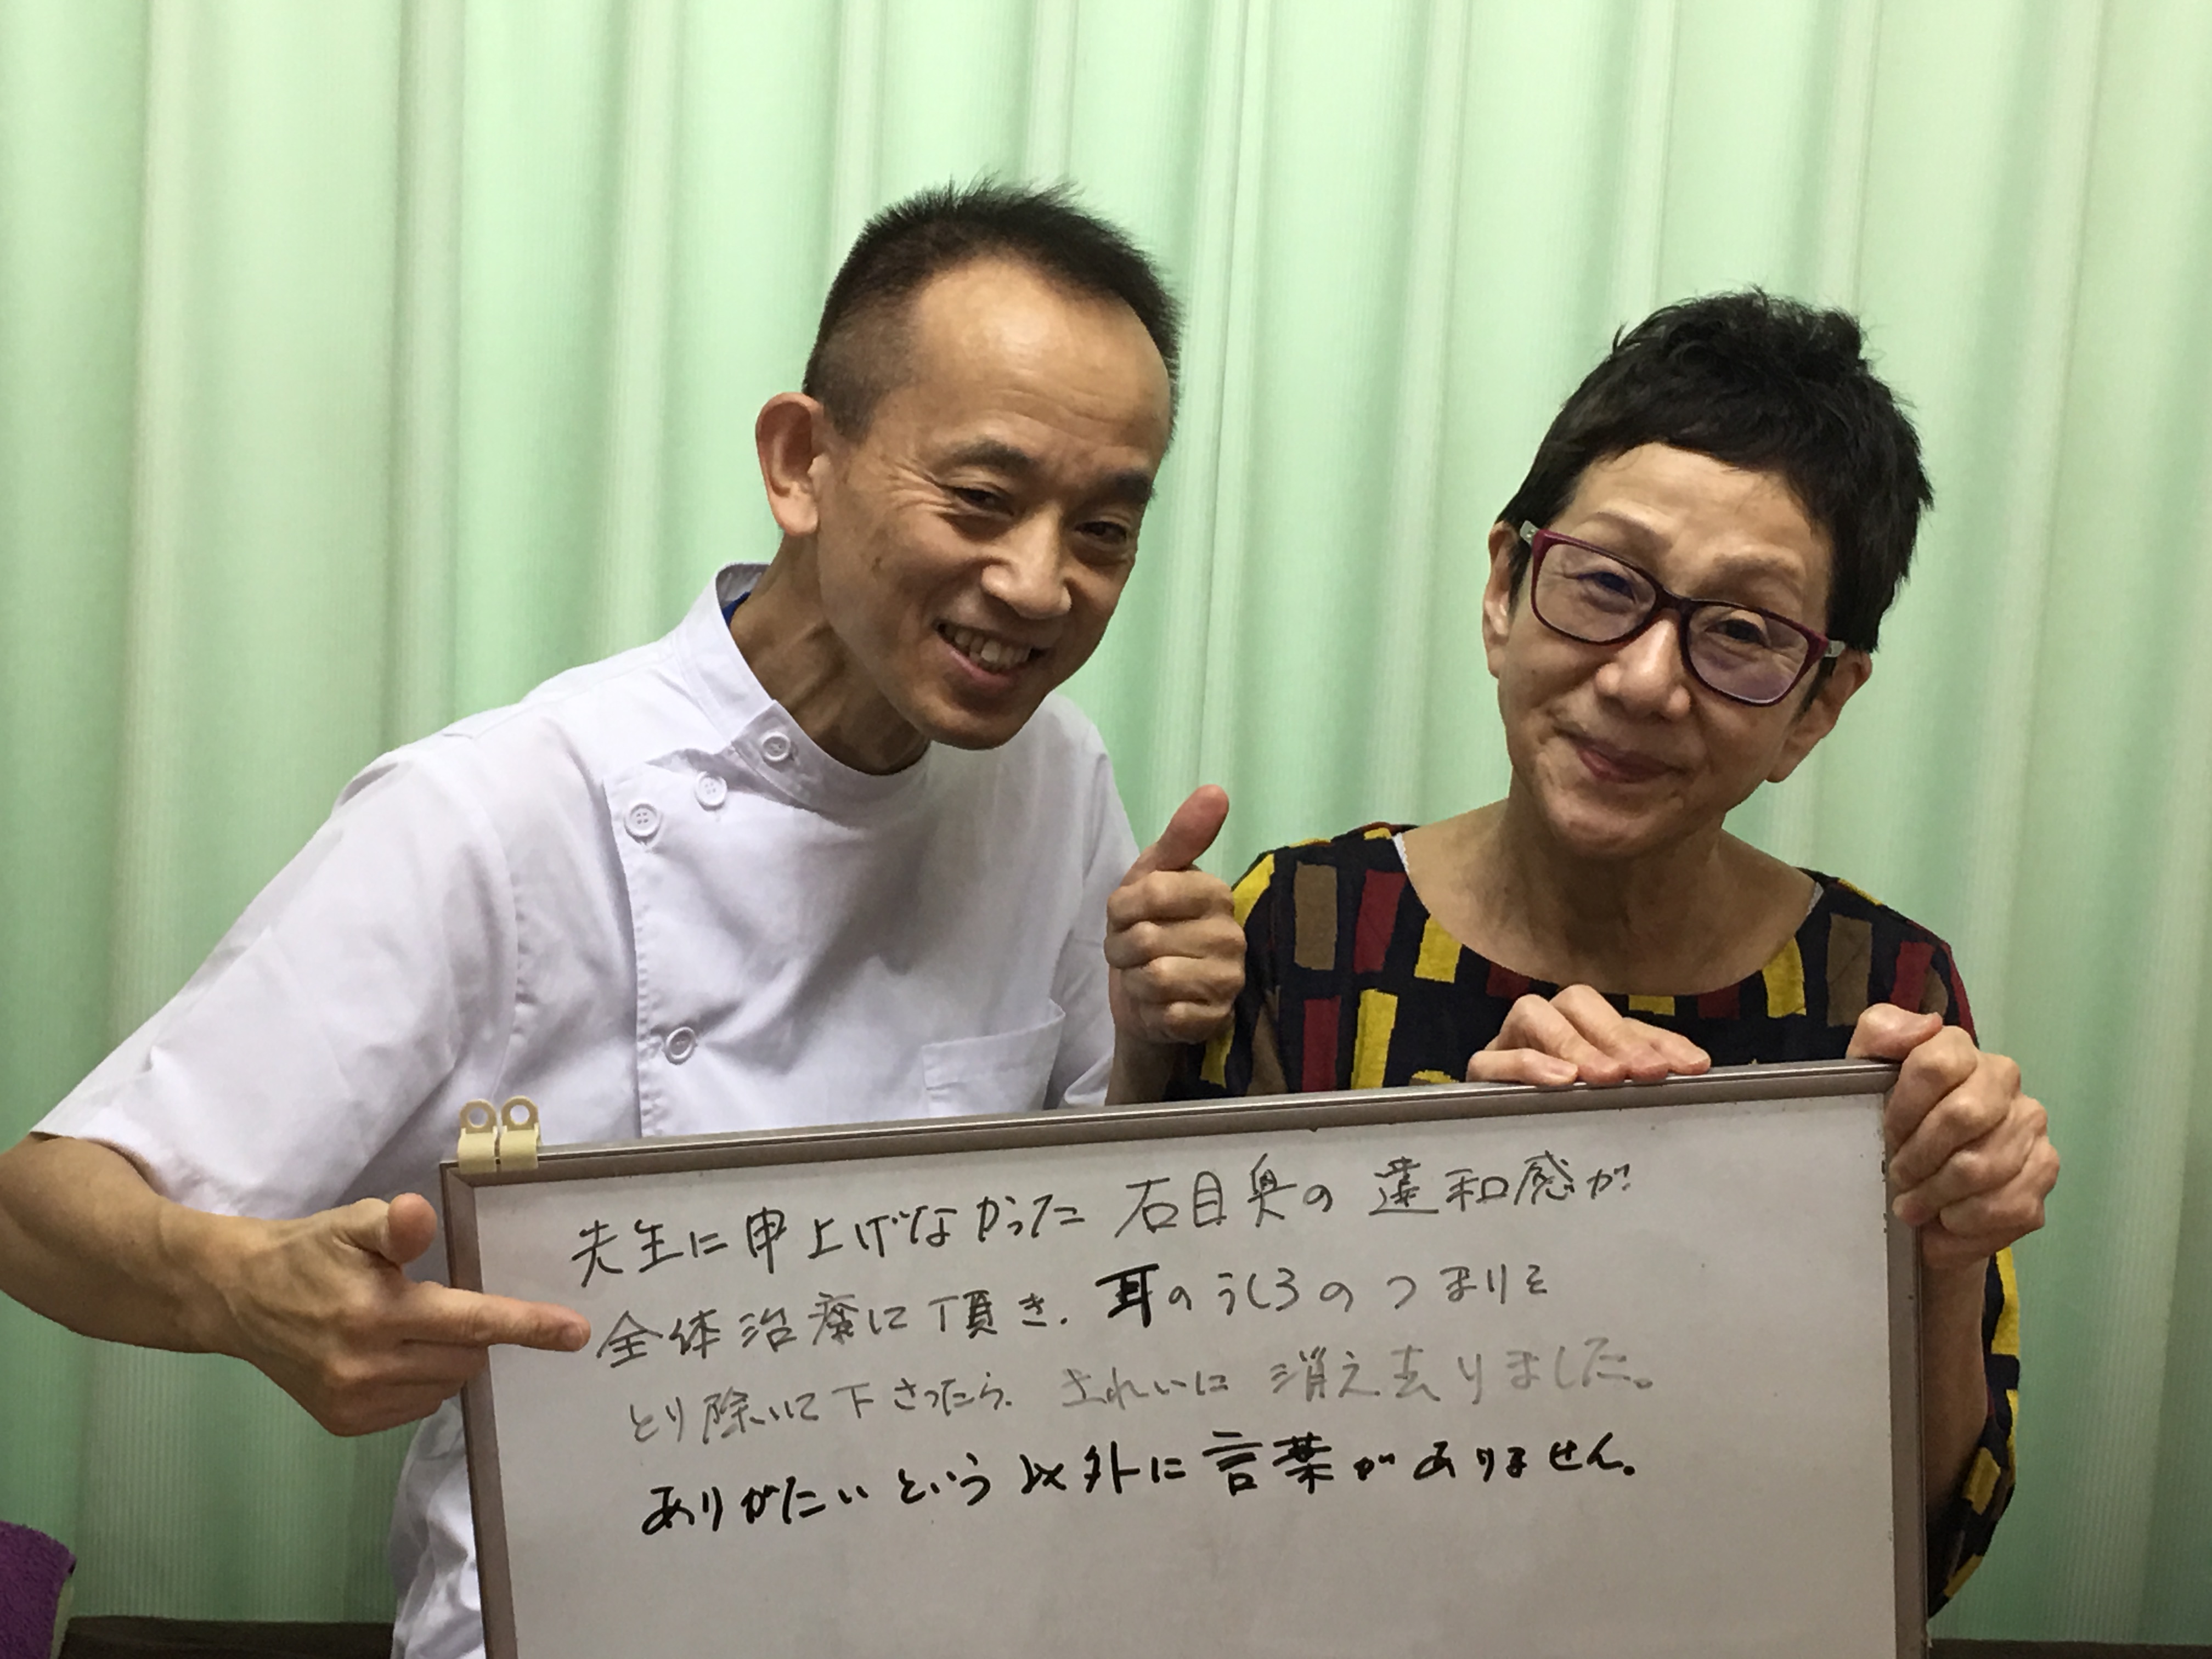 先生に申上げなかった 右目奥の 違和感が
全体治療に頂き、耳のうしろのつまりを
とり除いて下さったら、きれいに 消え去りました。
ありがたいという以外に言葉がありません。